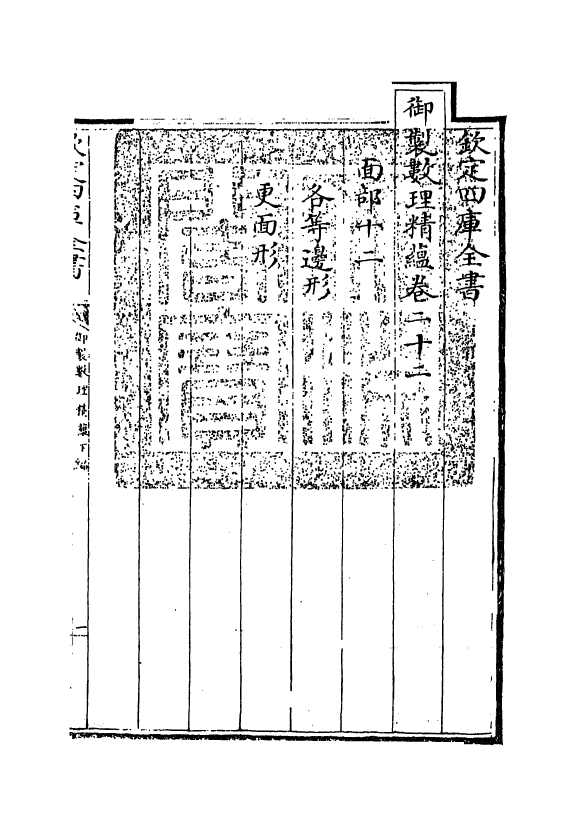 欽定四庫全書
御製數理精蘊卷二十二
面部十二
各等邊形
更面形
欽定四庫全書
御製數理精蘊下編